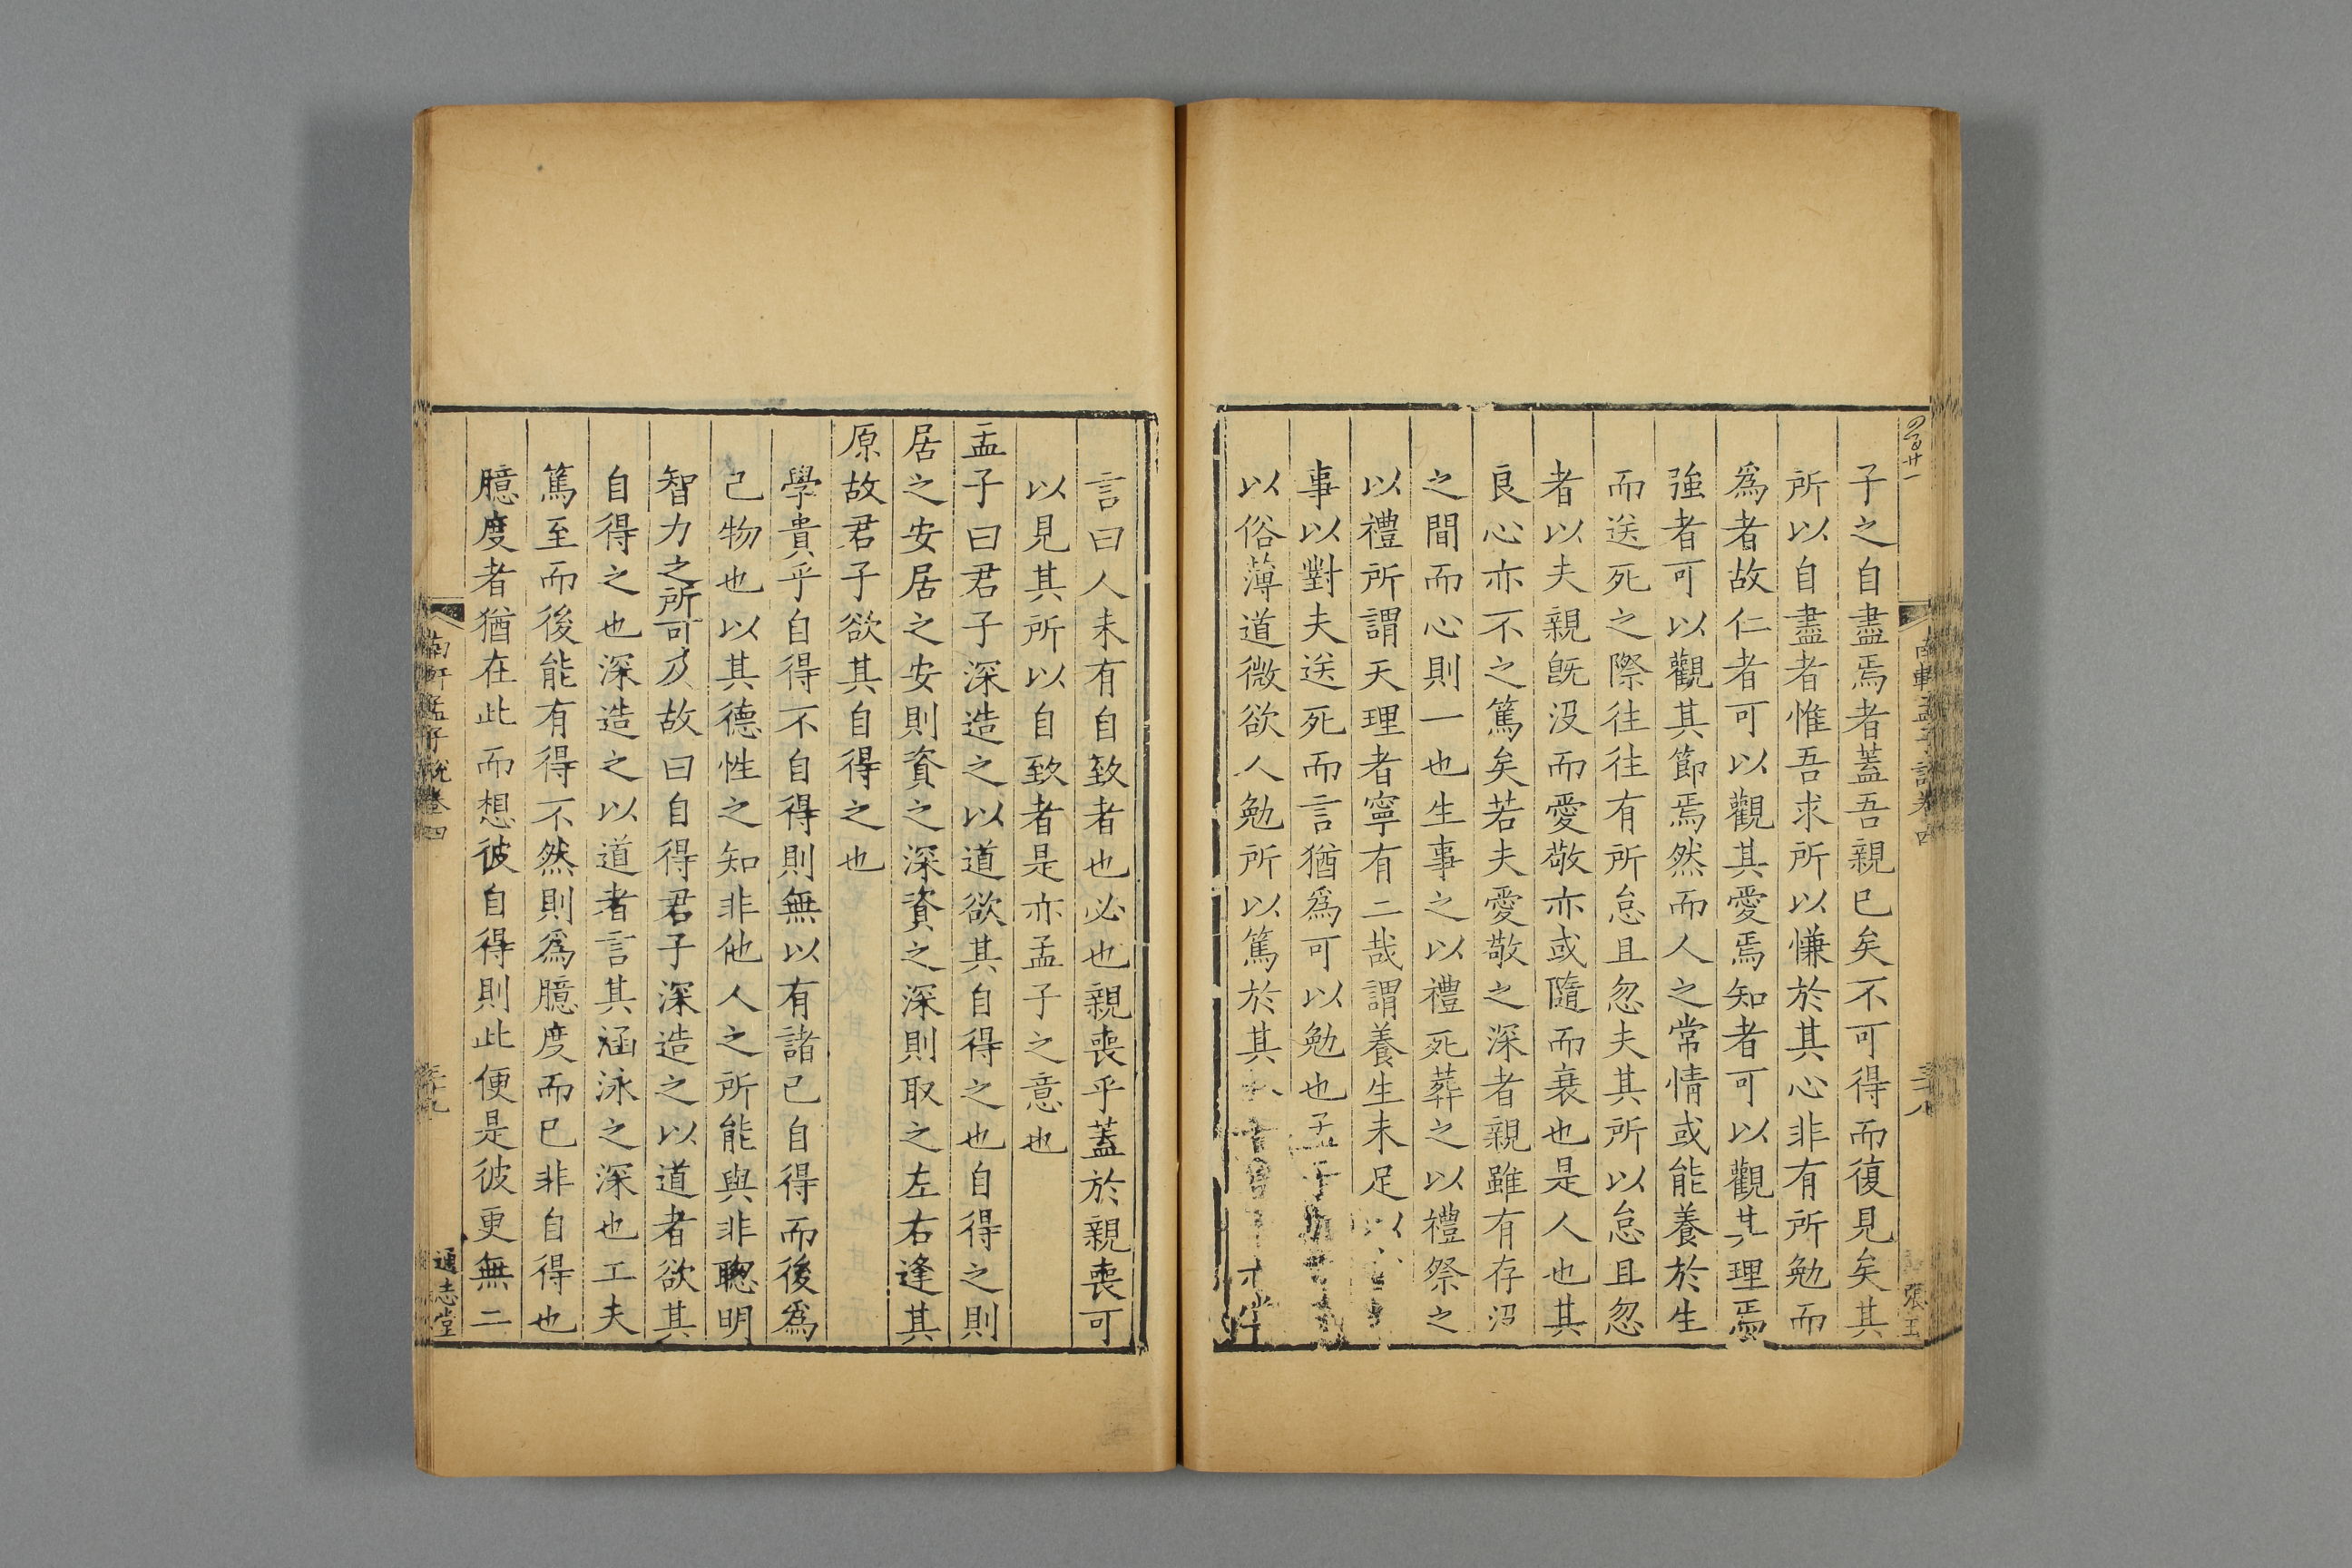 子之自盡焉者蓋吾親已矣不可得而復見矣其
所以自盡者惟吾求所以慊於其心非有所勉而
爲者故仁者可以觀其愛焉知者可以觀其理焉
強者可以觀其節焉然而人之常情或能養於生
而送死之際往往有所怠且忽夫其所以怠且忽
者以夫親旣沒而愛敬亦或隨而衰也是人也其
良心亦不之篤矣若夫愛敬之深者親雖有存沒
之間而心則一也生事之以禮死葬之以禮祭之
以禮所謂天理者寧有二哉謂養生未足以
事以對夫送死而言猶爲可以勉也孟子
以俗薄道微欲人勉所以篤於其
言曰人未有自致者也必也親喪乎蓋於親喪可
以見其所以自致者是亦孟子之意也
孟子曰君子深造之以道欲其自得之也自得之則
居之安居之安則資之深資之深則取之左右逢其
原故君子欲其自得之也
學貴乎自得不自得則無以有諸己自得而後爲
己物也以其德性之知非他人之所能與非聰明
智力之所可及故曰自得君子深造之以道者欲其
自得之也深造之以道者言其涵泳之深也工夫
篤至而後能有得不然則爲臆度而已非自得也
臆度者猶在此而想彼自得則此便是彼更無二
南軒孟子說卷四
三十九
通志堂